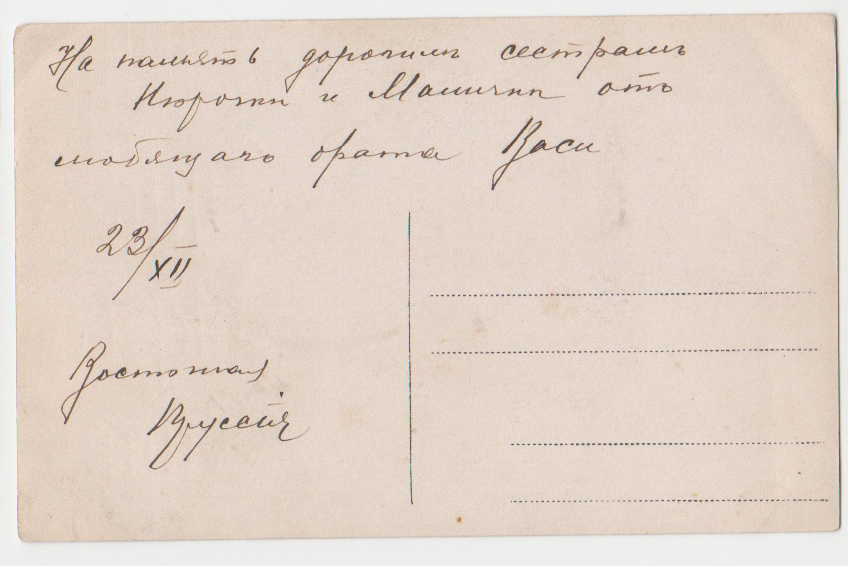 На память дорогимъ сестрамъ
Нюрочки и Машички отъ
любящаго брата Васи
23/XII
Восточная
Пруссія